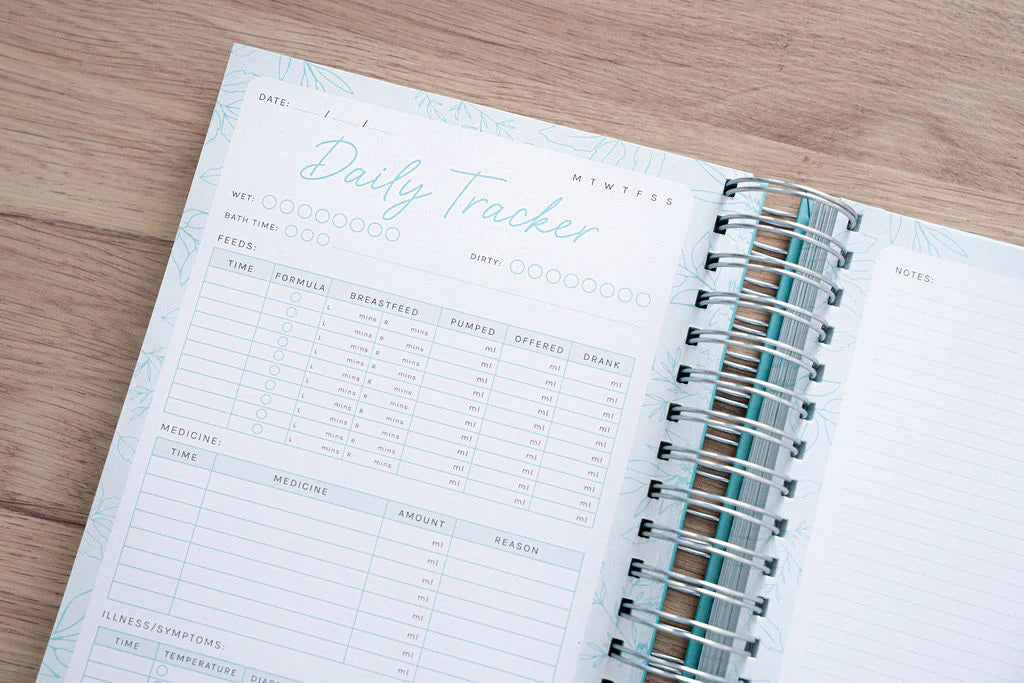 DATE: / /
Daily Tracker
M T W T F S S
WET:
BATH TIME:
DIRTY:
FEEDS:
TIME FORMULA BREASTFEED PUMPED OFFERED DRANK
L mins R mins ml ml ml
L mins R mins ml ml ml
L mins R mins ml ml ml
L mins R mins ml ml ml
L mins R mins ml ml ml
L mins R mins ml ml ml
L mins R mins ml ml ml
L mins R mins ml ml ml
L mins R mins ml ml ml
L mins R mins ml ml ml
MEDICINE:
TIME MEDICINE AMOUNT REASON
ml
ml
ml
ml
ml
ml
ml
ml
ILLNESS/SYMPTOMS:
TIME TEMPERATURE
NOTES: